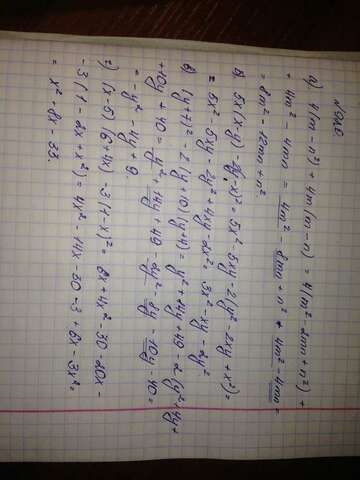 №920.
а) 4(m-n)² + 4m(m-n) = 4(m²-2mn+n²) +
+ 4m² - 4mn = 4m² - 8mn + n² + 4m² - 4mn =
= 8m² - 12mn + n²
б) 5x(x-y) - 2(y-x)² = 5x² - 5xy - 2(y² - 2xy + x²) =
= 5x² - 5xy - 2y² + 4xy - 2x² = 3x² - xy - 2y²
в) (y+7)² - 2(y+10)(y+4) = y² + 14y + 49 - 2(y² + 4y +
+10y + 40 = y² + 14y + 49 - 2y² - 8y - 10y - 40 =
= -y² - 4y + 9.
г) (x-5)(6+4x) - 3(1-x)² = 6x + 4x² - 30 - 20x -
-3(1 - 2x + x²) = 4x² - 14x - 30 - 3 + 6x - 3x² =
= x² - 8x - 33.